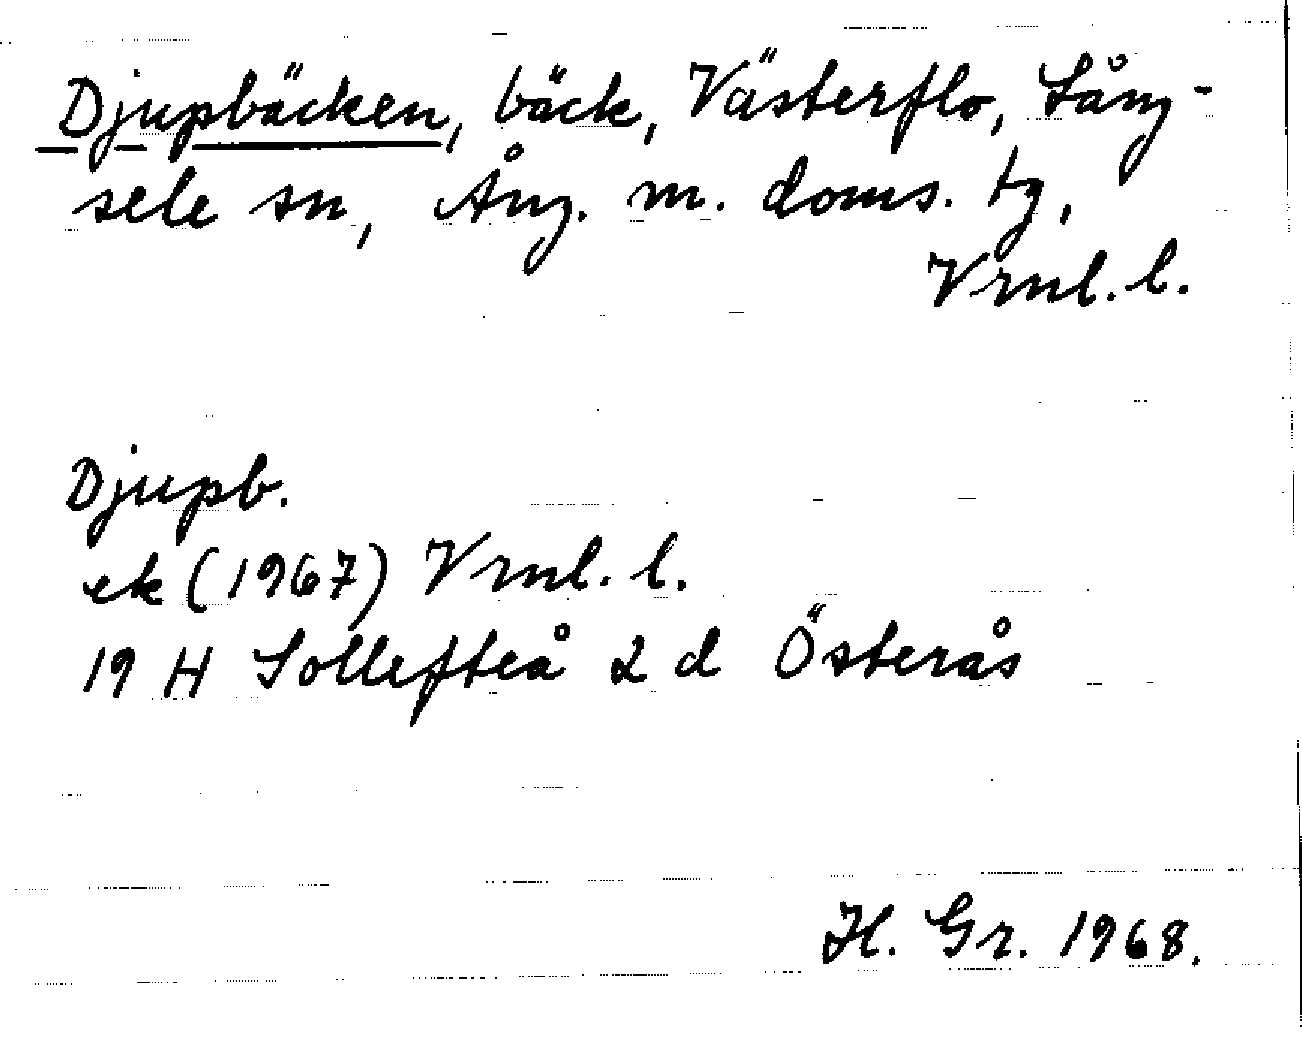 Djupbäcken, bäck, Västerflo, Lång-
sele sn, Ång. m. doms. tg,
Vrnl. l.
Djupb.
ek (1967) Vrnl. l.
19 H Sollefteå 2 d Österås
H. Gr. 1968.